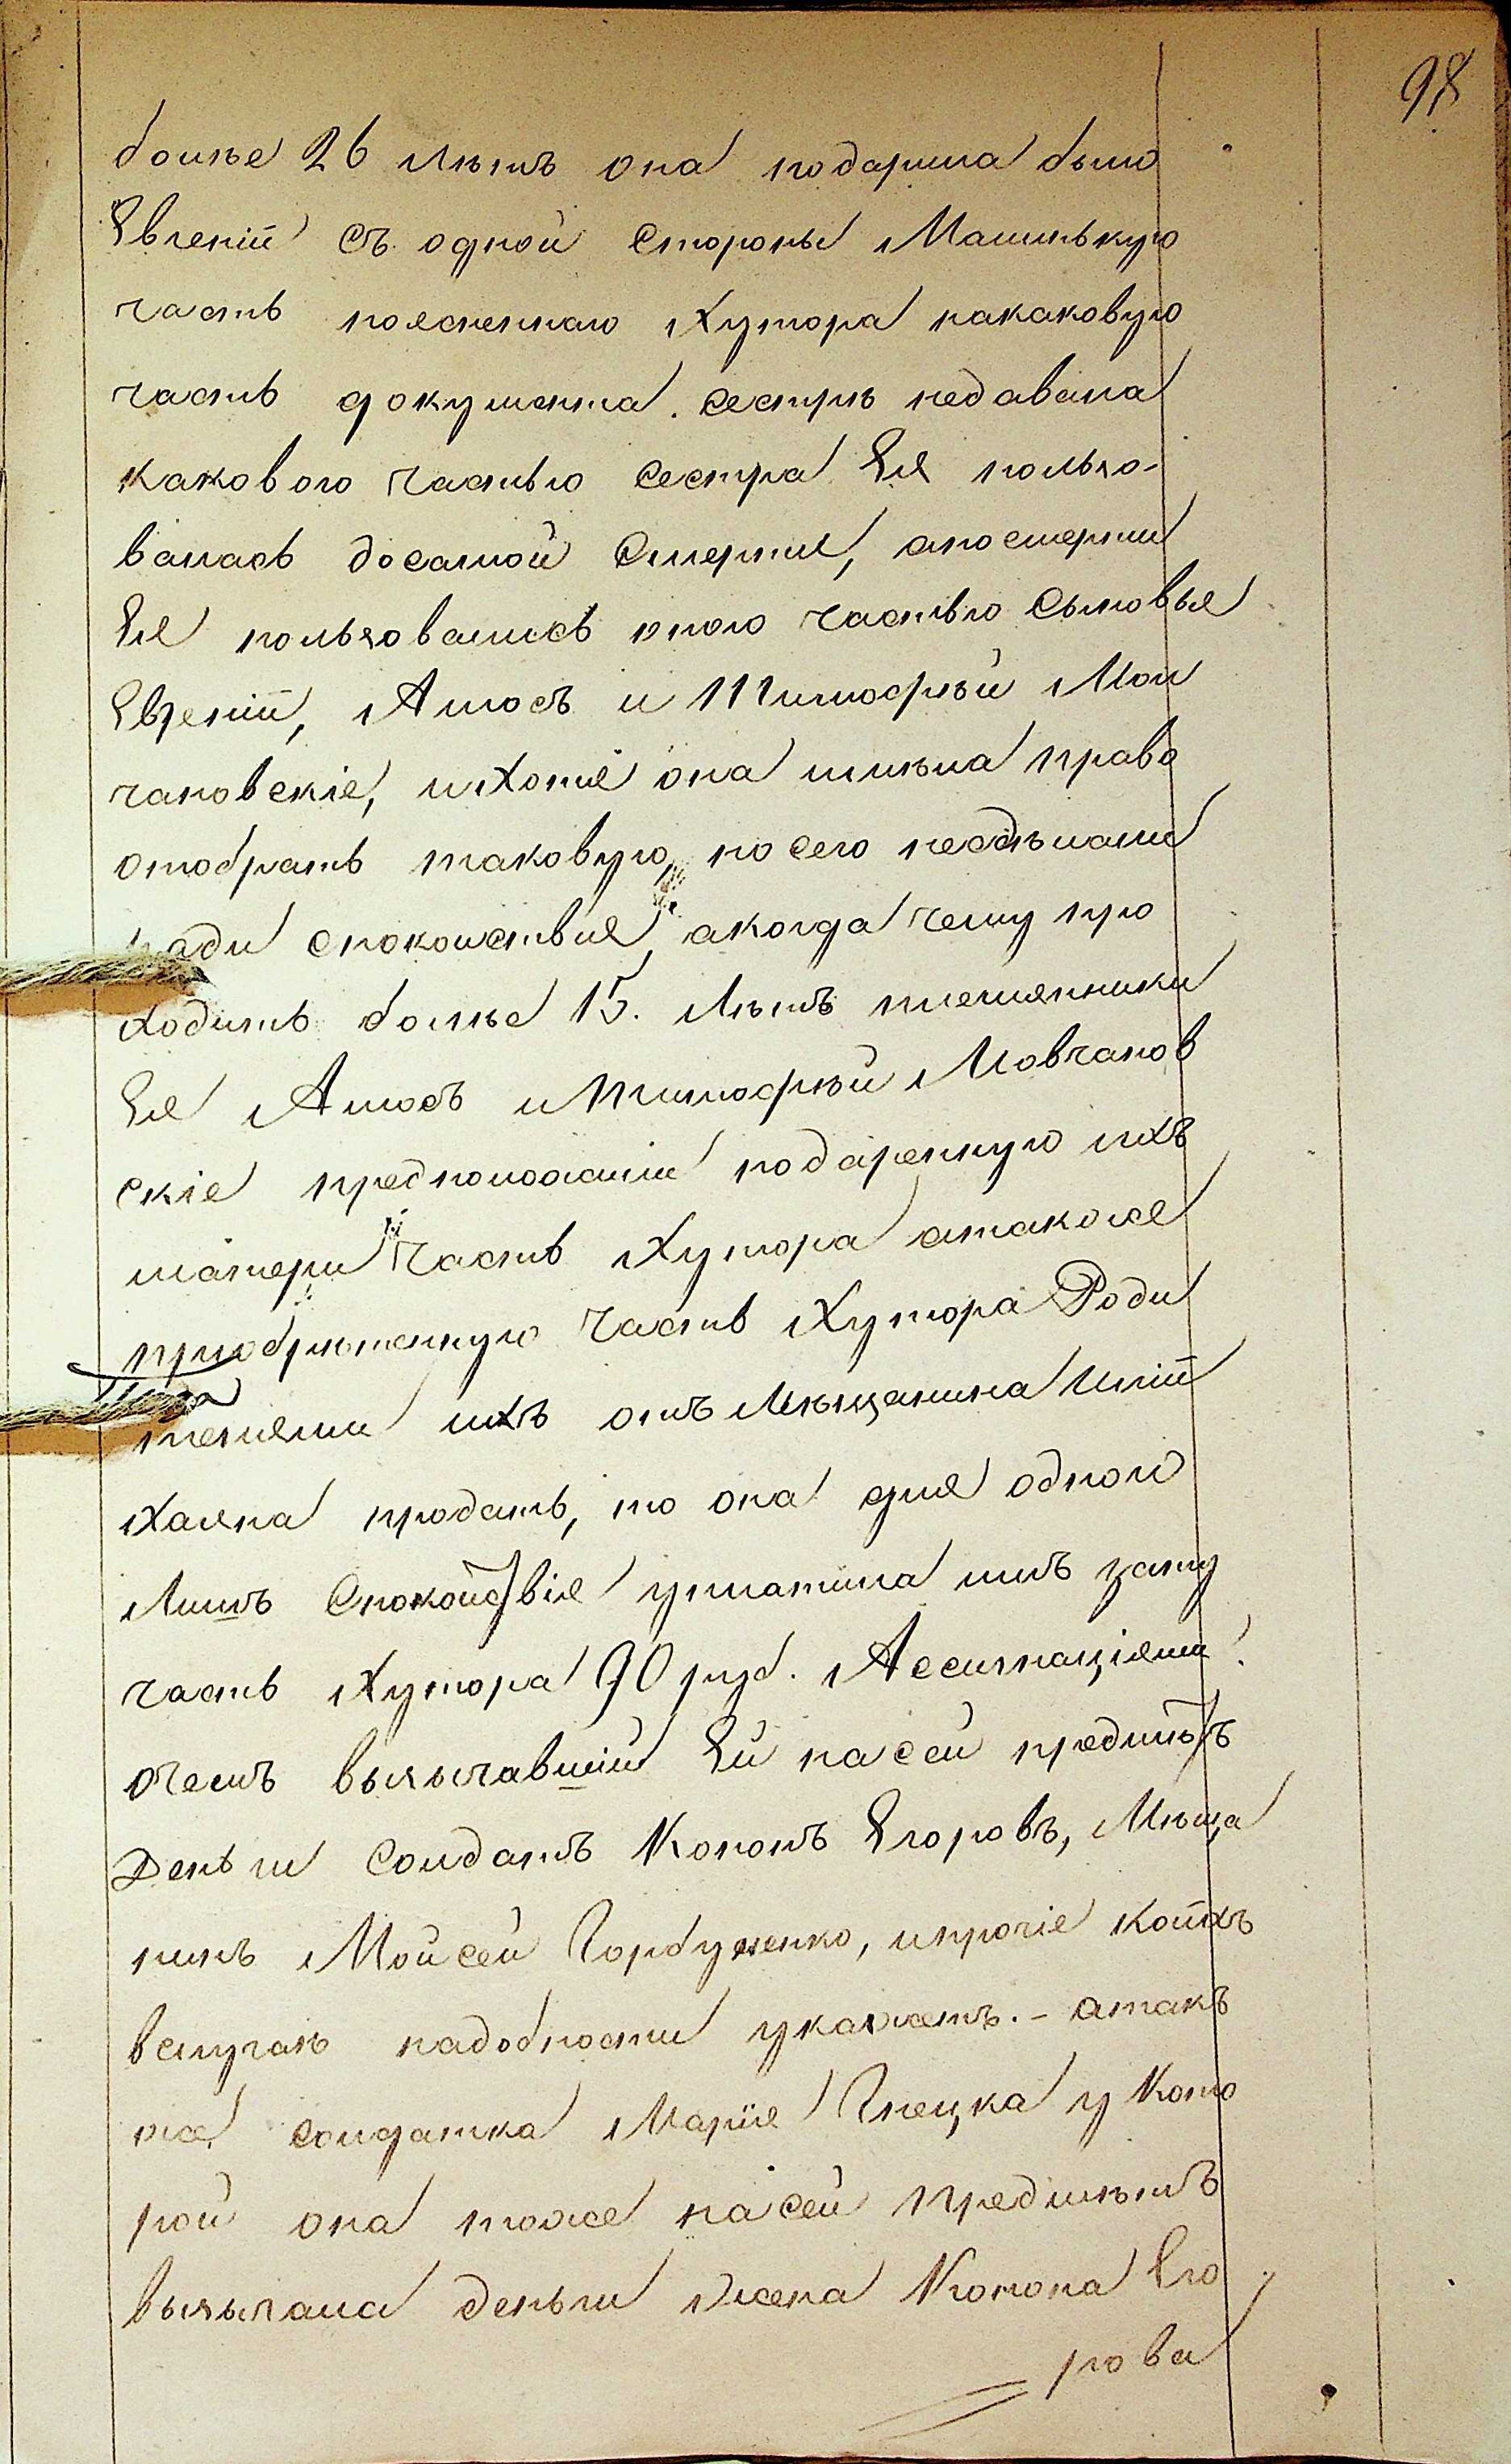 98
более 26 лѣтъ она подарила было
Евгеніи съ одной стороны Малинькую
часть поясненнаго Хутора накаковую
часть документа сестрѣ недавала
каковою частью сестра Ея пользо-
валась досамой Смерти, апосмерти
Ея пользовались оною частью сыновья
Евгеніи, Амосъ и Тимофѣй Мол
чановскіе, ихотя она имѣла право
отобрать таковую, но сего несдѣлала
ради спокойствія, акогда чему про
ходитъ более 15. лѣтъ племянники
Ея Амосъ и Тимофѣй Мовчанов
скіе предположили подаренную ихъ
матери часть Хутора атакже
приобрѣтенную часть Хутора Роди
телями ихъ отъ Мѣщанина
продать, то она для одной
Лишъ Спокойствія уплатила имъ зату
часть Хутора 90 руб. Ассигнаціями
очемъ вызычавшій Ей насей предмѣтъ
Деньги Солдатъ Кононъ Егоровъ, Мѣща
нинъ Мойсей Горбуненко, ипрочіе коихъ
вслучаѣ надобности укажетъ. - атакъ
же солдатка Марія Гнецка у Кото
рой она тоже насей предмѣтъ
вызычала деньги жена Конона Его
рова